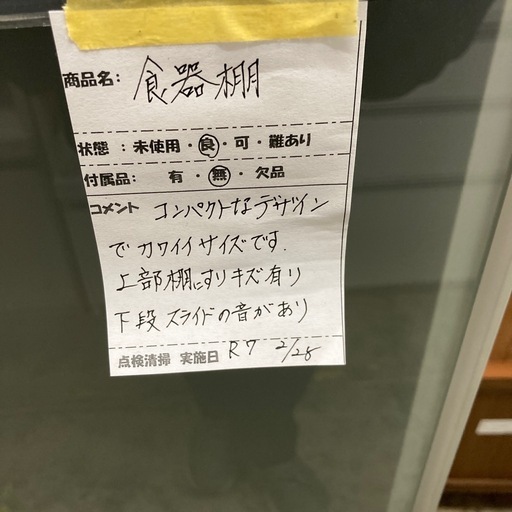 商品名: 食器棚
状態 : 未使用・良・可・難あり
付属品: 有・無・欠品
コメント コンパクトなデザイン
でカワイイサイズです.
上部棚にすりキズ有り
下段スライドの音があり
点検清掃 実施日 R7 2/28